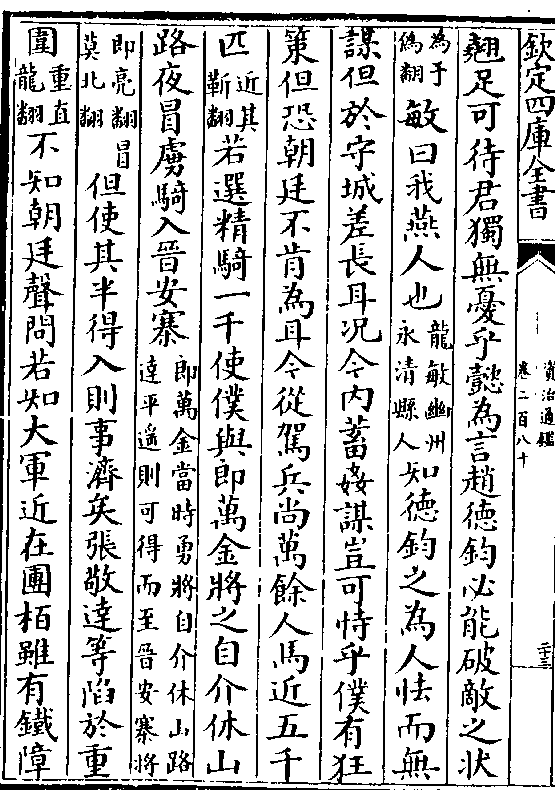 欽定四庫全書
資治通鑑
卷二百八十
翹足可待君獨無憂乎懿為言趙德鈞必能破敵之狀
為于偽翻敏曰我燕人也龍敏幽州永清縣人知德鈞之為人怯而無
謀但於守城差長耳况今内蓄姦謀豈可恃乎僕有狂
策但恐朝廷不肯為耳今從駕兵尚萬餘人馬近五千
匹近其靳翻若選精騎一千使僕與郎萬金將之自介休山
路夜冒虜騎入晉安寨郎萬金當時勇將自介休山路達平遥則可得而至晉安寨將
即亮翻冒莫北翻但使其半得入則事濟矣張敬達等陷於重
圍重直龍翻不知朝廷聲問若知大軍近在團栢雖有鐵障